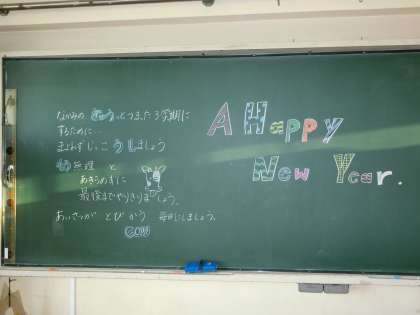 なかみの ぎゅうっとつまった3学期に
するために…
まよわずじっこうしましょう
無理と
あきらめずに
最後までやりきりましょう。
あいさつが とびかう 毎日にしましょう。
COW
A Happy
New Year.